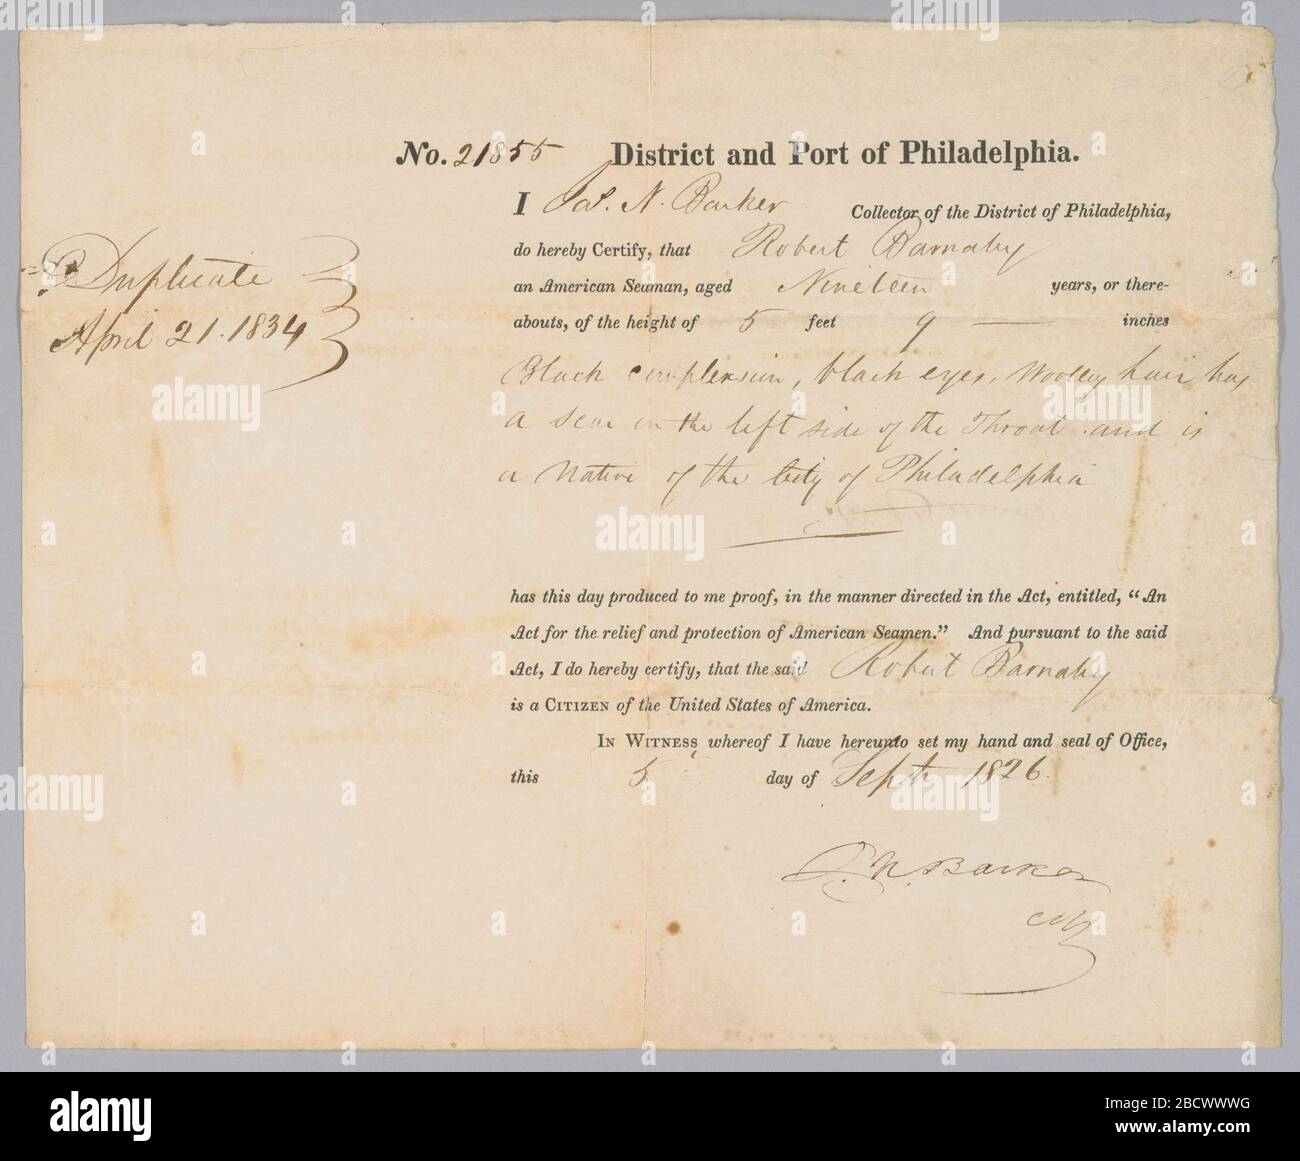 No. 21855 District and Port of Philadelphia.
I Jas. N. Barker Collector of the District of Philadelphia,
do hereby Certify, that Robert Barnaby
an American Seaman, aged Nineteen years, or there-
abouts, of the height of 5 feet 9 — inches
Black complexion, black eyes, Woolley hair has
a scar on the left side of the Throat and is
a Native of the City of Philadelphia
has this day produced to me proof, in the manner directed in the Act, entitled, “An
Act for the relief and protection of American Seamen.” And pursuant to the said
Act, I do hereby certify, that the said Robert Barnaby
is a CITIZEN of the United States of America.
IN WITNESS whereof I have hereunto set my hand and seal of Office,
this 5 day of Sept 1826.
J. N. Barker
Duplicate
April 21. 1834
alamy
Image ID: 2BCWWWG
www.alamy.com